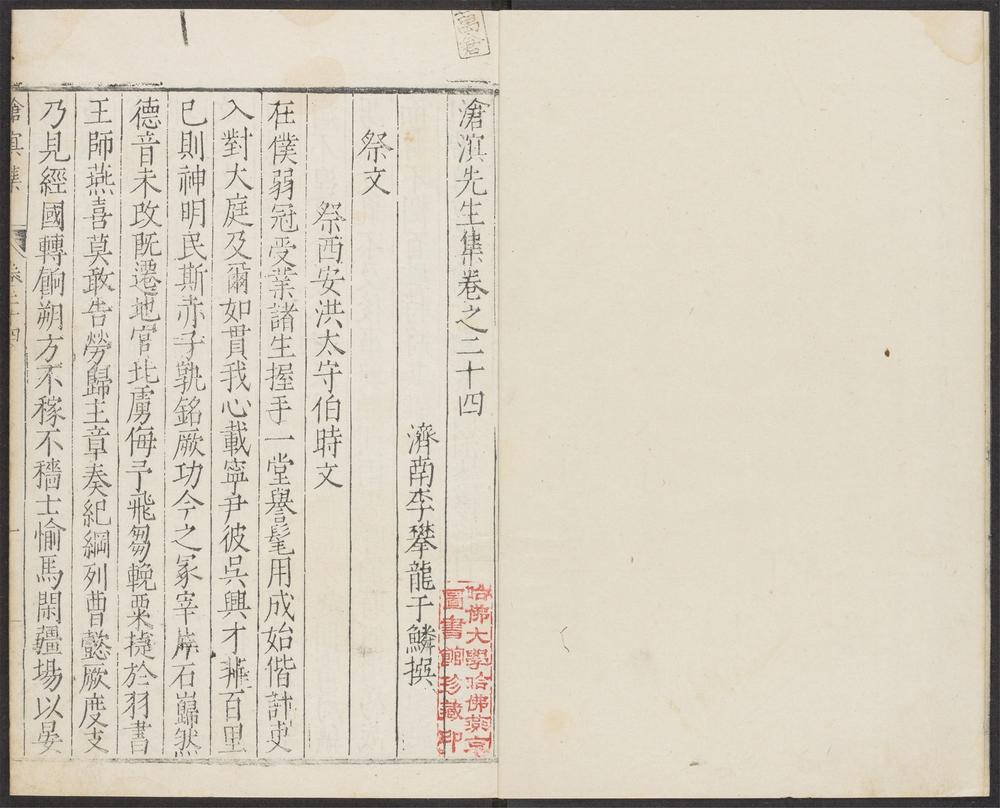 滄溟先生集卷之二十四
濟南李攀龍于鱗撰
祭文
祭西安洪太守伯時文
在僕弱冠受業諸生握手一堂譽髦用成始偕計吏
入對大庭及爾如貫我心載寧尹彼吳興才雄百里
已則神明民斯赤子孰銘厥功今之冢宰片石巋然
德音未改旣遷地官北虜侮予飛芻輓粟捷於羽書
王師燕喜莫敢告勞歸主章奏紀綱列曹懿厥度支
乃見經國轉餉朔方不稼不穡士愉馬閑疆場以晏
滄溟集
卷二十四
一
哈佛大學哈佛燕京
圖書館珍藏印